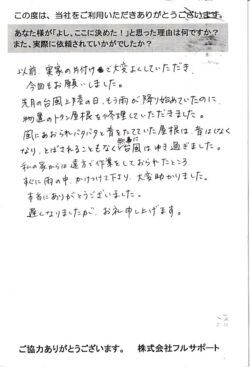 この度は、当社をご利用いただきありがとうございます。
あなた様が「よし、ここに決めた！」と思った理由は何ですか？
また、実際に依頼されていかがでしたか？
以前、実家の片付けで大変よくしていただき、
今回もお願いしました。
先月の台風上陸の日、もう雨が降り始めていたのに、
物置のトタン屋根を修理していただきました。
風にあおられバタバタと音をたてていた屋根は、音はしなく
なり、とばされることもなく無事に台風はゆき過ぎました。
私の家からは遠方で作業をしておられたところ
すぐに雨の中、かけつけて下さり、大変助かりました。
本当にありがとうございました。
遅くなりましたが、お礼申し上げます。
ご協力ありがとうございます。 株式会社フルサポート